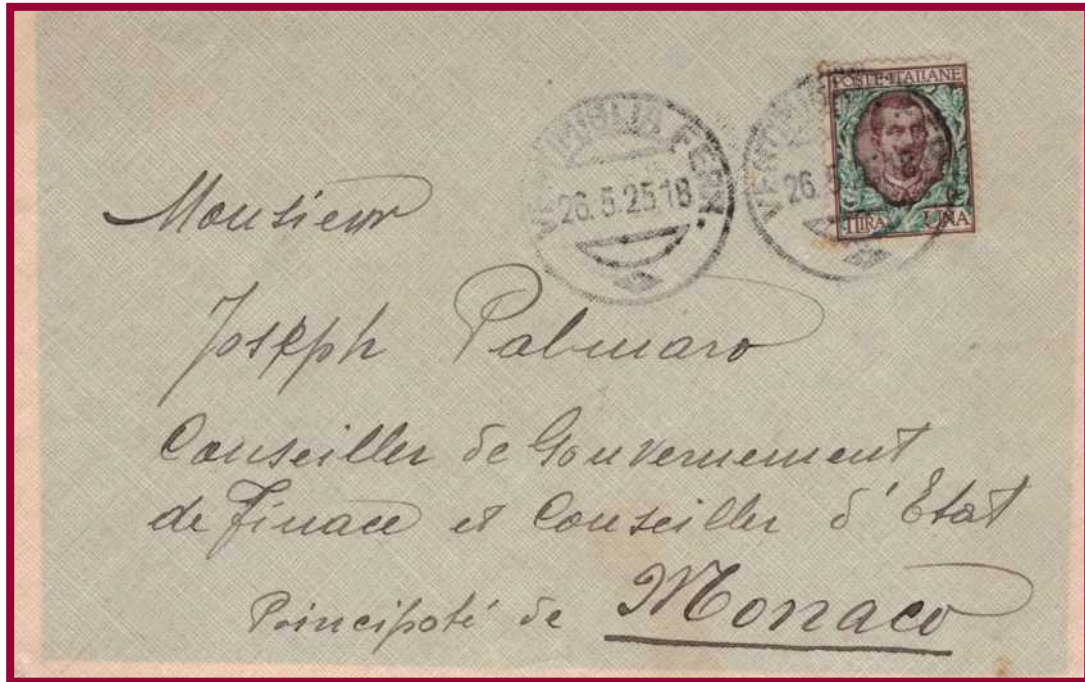 POSTE·ITALIANE
LIRA UNA
VENTIMIGLIA FERR.
26.5.25 18
VENTIMIGLIA
26.5
Monsieur
Joseph Palmaro
Conseiller de Gouvernement
de Finace et Conseiller d'Etat
Principoté de Monaco